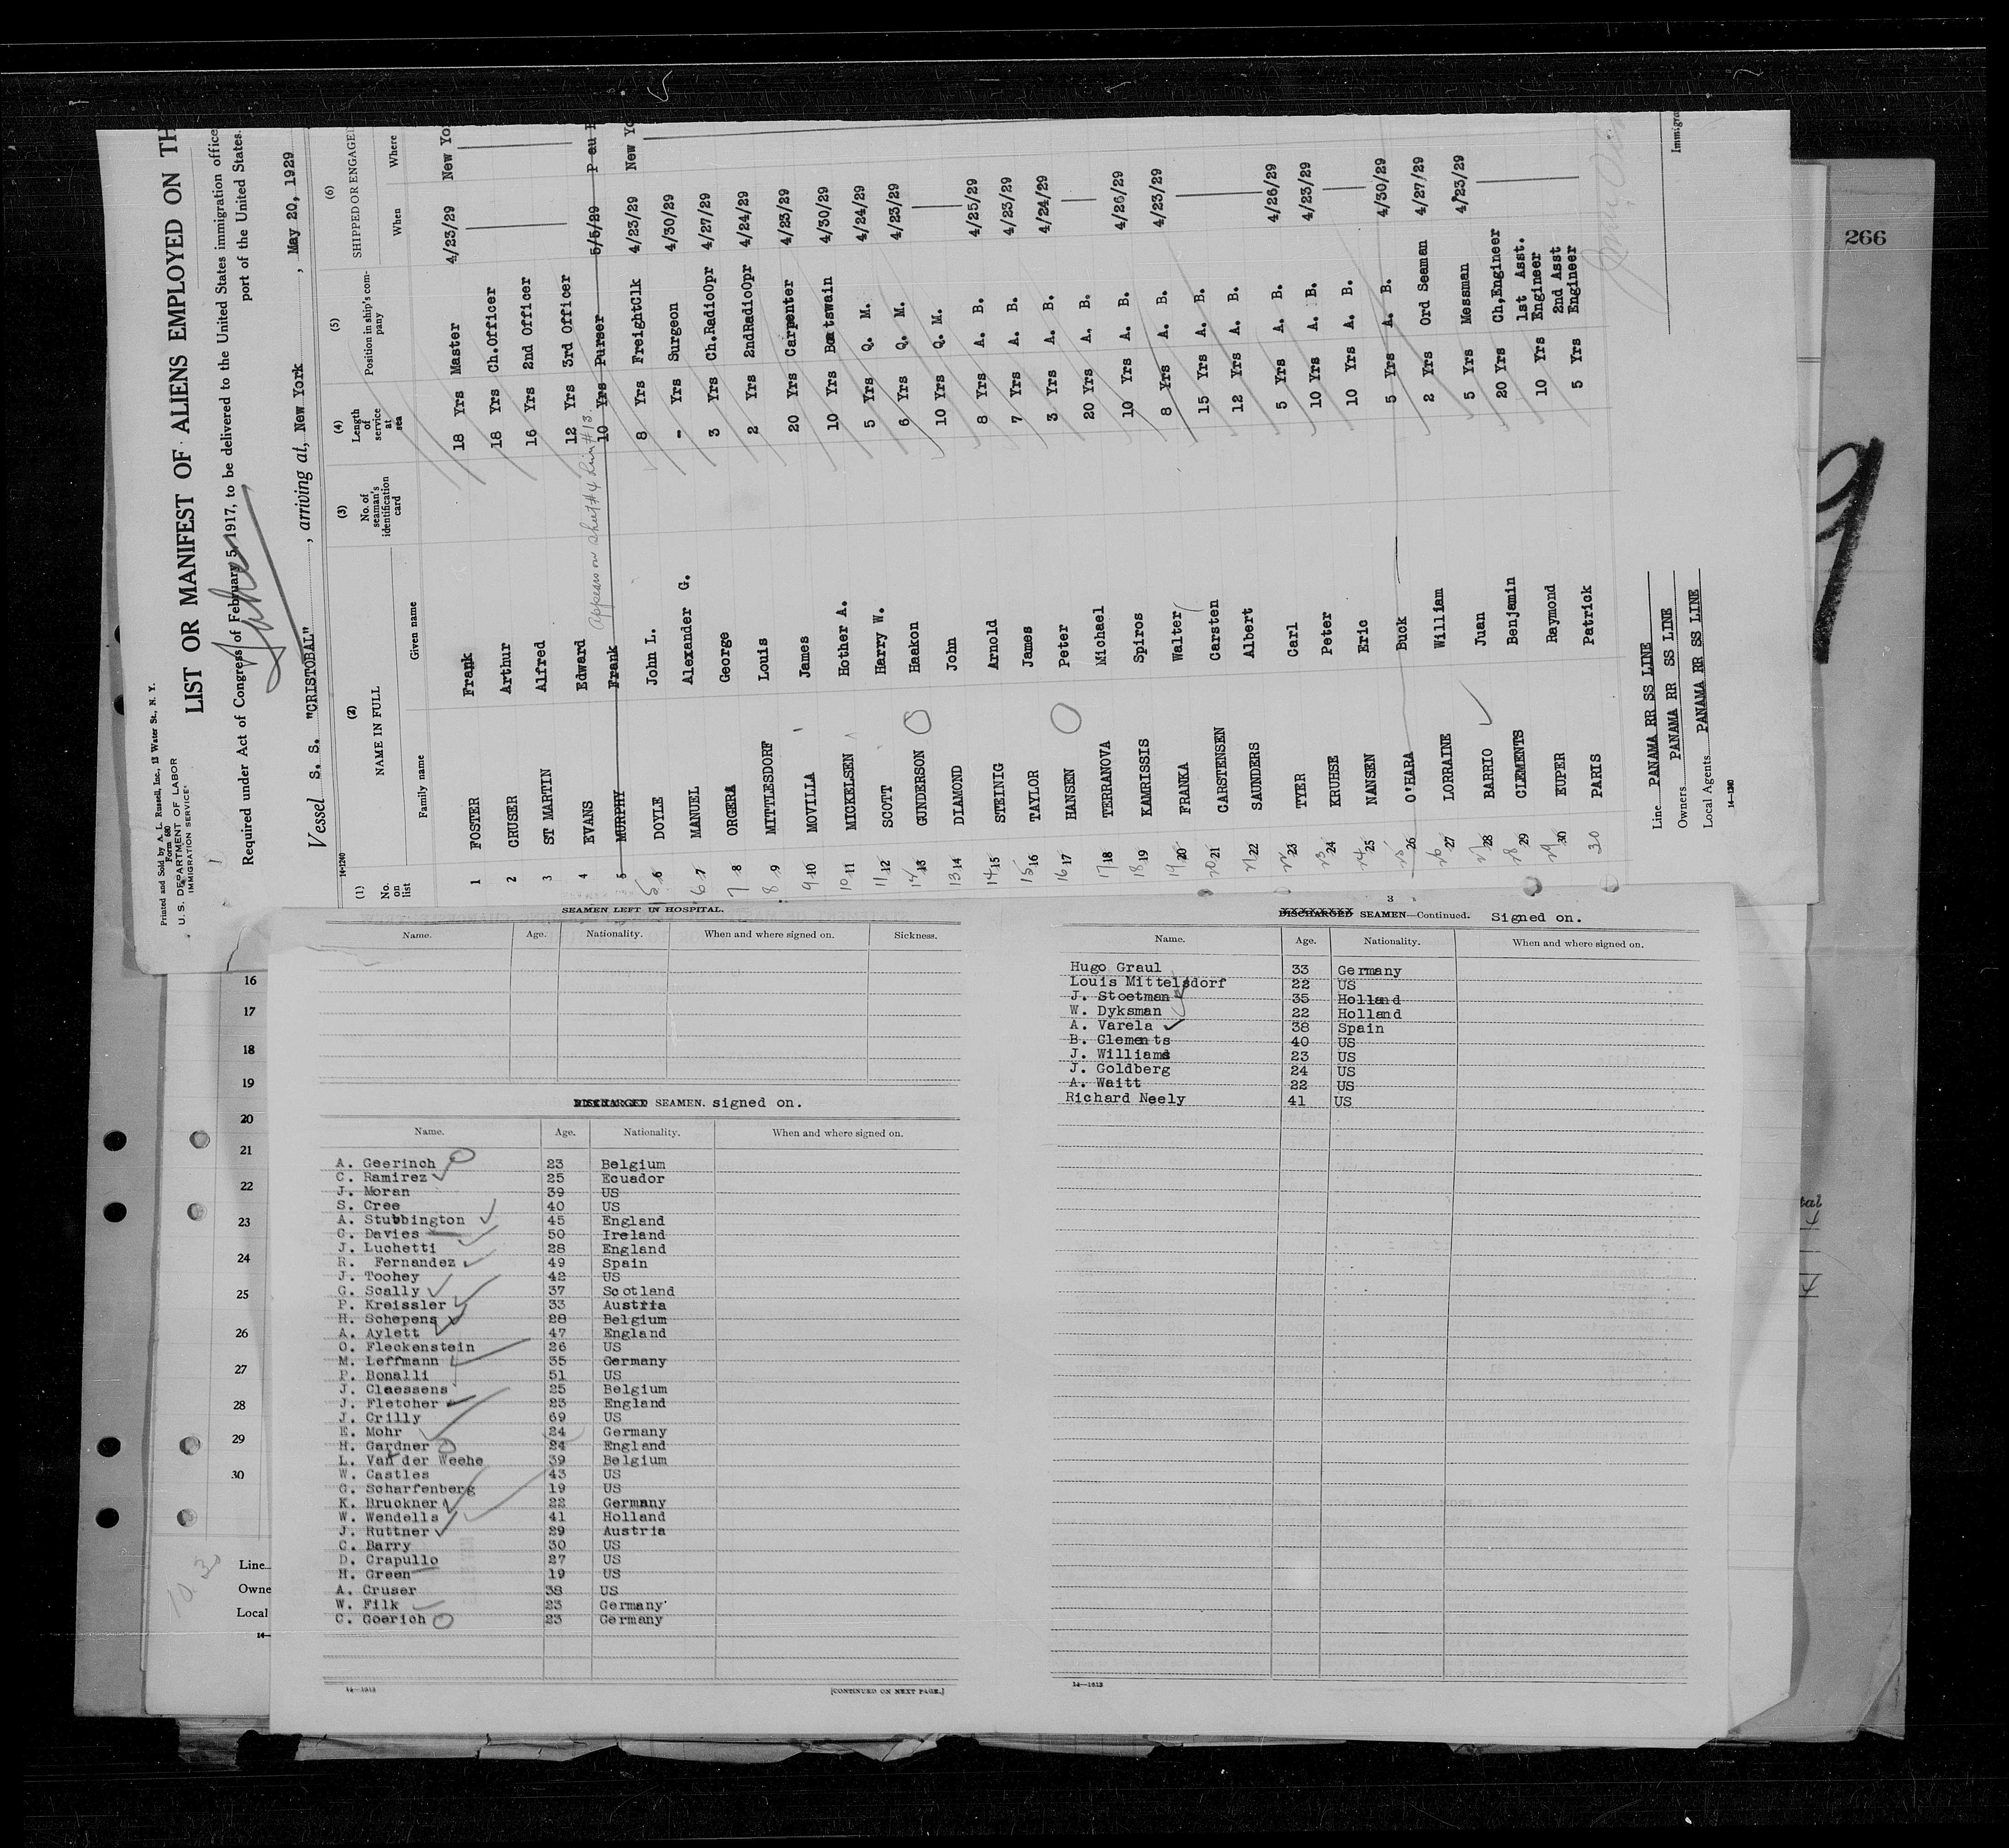 Printed and Sold by A. L. Russell, Inc., 13 Water St., N. Y.
Form 680
U. S. DEPARTMENT OF LABOR
IMMIGRATION SERVICE
LIST OR MANIFEST OF ALIENS EMPLOYED ON TH
Required under Act of Congress of February 5, 1917, to be delivered to the United States immigration office
port of the United States.
Vessel S. S. "CRISTOBAL", arriving at, New York, May 20, 1929
14-1240
(1) (2) (3) (4) (5) (6)
No. on list NAME IN FULL No. of seaman's identification card Length of service at sea Position in ship's company SHIPPED OR ENGAGED
Family name Given name When Where
1 FOSTER Frank 18 Yrs Master 4/23/29 New Yo
2 CRUSER Arthur 18 Yrs Ch.Officer
3 ST MARTIN Alfred 16 Yrs 2nd Officer
4 EVANS Edward 12 Yrs 3rd Officer
Appears on sheet #4 Line #13.
5 MURPHY Frank 10 Yrs Purser 5/5/29 P au
5 6 DOYLE John L. 8 Yrs FreightClk 4/23/29 New Yo
6 7 MANUEL Alexander G. - Yrs Surgeon 4/30/29
7 8 ORGERA George 3 Yrs Ch.RadioOpr 4/27/29
8 9 MITTLESDORF Louis 2 Yrs 2ndRadioOpr 4/24/29
9 10 MOVILLA James 20 Yrs Carpenter 4/23/29
10 11 MICKELSEN Hother A. 10 Yrs Boatswain 4/30/29
11 12 SCOTT Harry W. 5 Yrs Q. M. 4/24/29
12 13 GUNDERSON Haakon 6 Yrs Q. M. 4/23/29
13 14 DIAMOND John 10 Yrs Q. M.
14 15 STEINIG Arnold 8 Yrs A. B. 4/25/29
15 16 TAYLOR James 7 Yrs A. B. 4/23/29
16 17 HANSEN Peter 3 Yrs A. B. 4/24/29
17 18 TERRANOVA Michael 20 Yrs A. B.
18 19 KAMRISSIS Spiros 10 Yrs A. B. 4/26/29
19 20 FRANKA Walter 8 Yrs A. B. 4/23/29
20 21 CARSTENSEN Carsten 15 Yrs A. B.
21 22 SAUNDERS Albert 12 Yrs A. B.
22 23 TYER Carl 5 Yrs A. B. 4/26/29
23 24 KRUHSE Peter 10 Yrs A. B. 4/23/29
24 25 NANSEN Eric 10 Yrs A. B.
25 26 O'HARA Buck 5 Yrs A. B. 4/30/29
26 27 LORRAINE William 2 Yrs Ord Seaman 4/27/29
27 28 BARRIO Juan 5 Yrs Messman 4/23/29
28 29 CLEMENTS Benjamin 20 Yrs Ch,Engineer
29 30 EUPER Raymond 10 Yrs 1st Asst. Engineer
30 PARIS Patrick 5 Yrs 2nd Asst Engineer
Line PANAMA RR SS LINE
Owners PANAMA RR SS LINE
Local Agents PANAMA RR SS LINE
14-1240
Immigra
266
9
16
17
18
19
20
21
22
23
24
25
26
27
28
29
30
Line
Owne
Local
14-
tal
SEAMEN LEFT IN HOSPITAL.
Name. Age. Nationality. When and where signed on. Sickness.
DISCHARGED SEAMEN. signed on.
Name. Age. Nationality. When and where signed on.
A. Geerinch 23 Belgium
C. Ramirez 25 Ecuador
J. Moran 39 US
S. Cree 40 US
A. Stubbington 45 England
G. Davies 50 Ireland
J. Luchetti 28 England
R. Fernandez 49 Spain
J. Toohey 42 US
G. Scally 37 Scotland
P. Kreissler 33 Austria
H. Schepens 28 Belgium
A. Aylett 47 England
O. Fleckenstein 26 US
M. Leffmann 35 Germany
P. Bonalli 51 US
J. Claessens 25 Belgium
J. Fletcher 23 England
J. Crilly 69 US
E. Mohr 24 Germany
H. Gardner 24 England
L. Van der Weehe 39 Belgium
W. Castles 43 US
G. Scharfenberg 19 US
K. Bruckner 22 Germany
W. Wendells 41 Holland
J. Ruttner 29 Austria
C. Barry 30 US
D. Crapullo 27 US
H. Green 19 US
A. Cruser 38 US
W. Filk 23 Germany
C. Goerich 23 Germany
14-1613
[CONTINUED ON NEXT PAGE.]
3
DISCHARGED SEAMEN—Continued. Signed on.
Name. Age. Nationality. When and where signed on.
Hugo Graul 33 Germany
Louis Mittelsdorf 22 US
J. Stoetman 35 Holland
W. Dyksman 22 Holland
A. Varela 38 Spain
B. Clements 40 US
J. Williams 23 US
J. Goldberg 24 US
A. Waitt 22 US
Richard Neely 41 US
14-1613